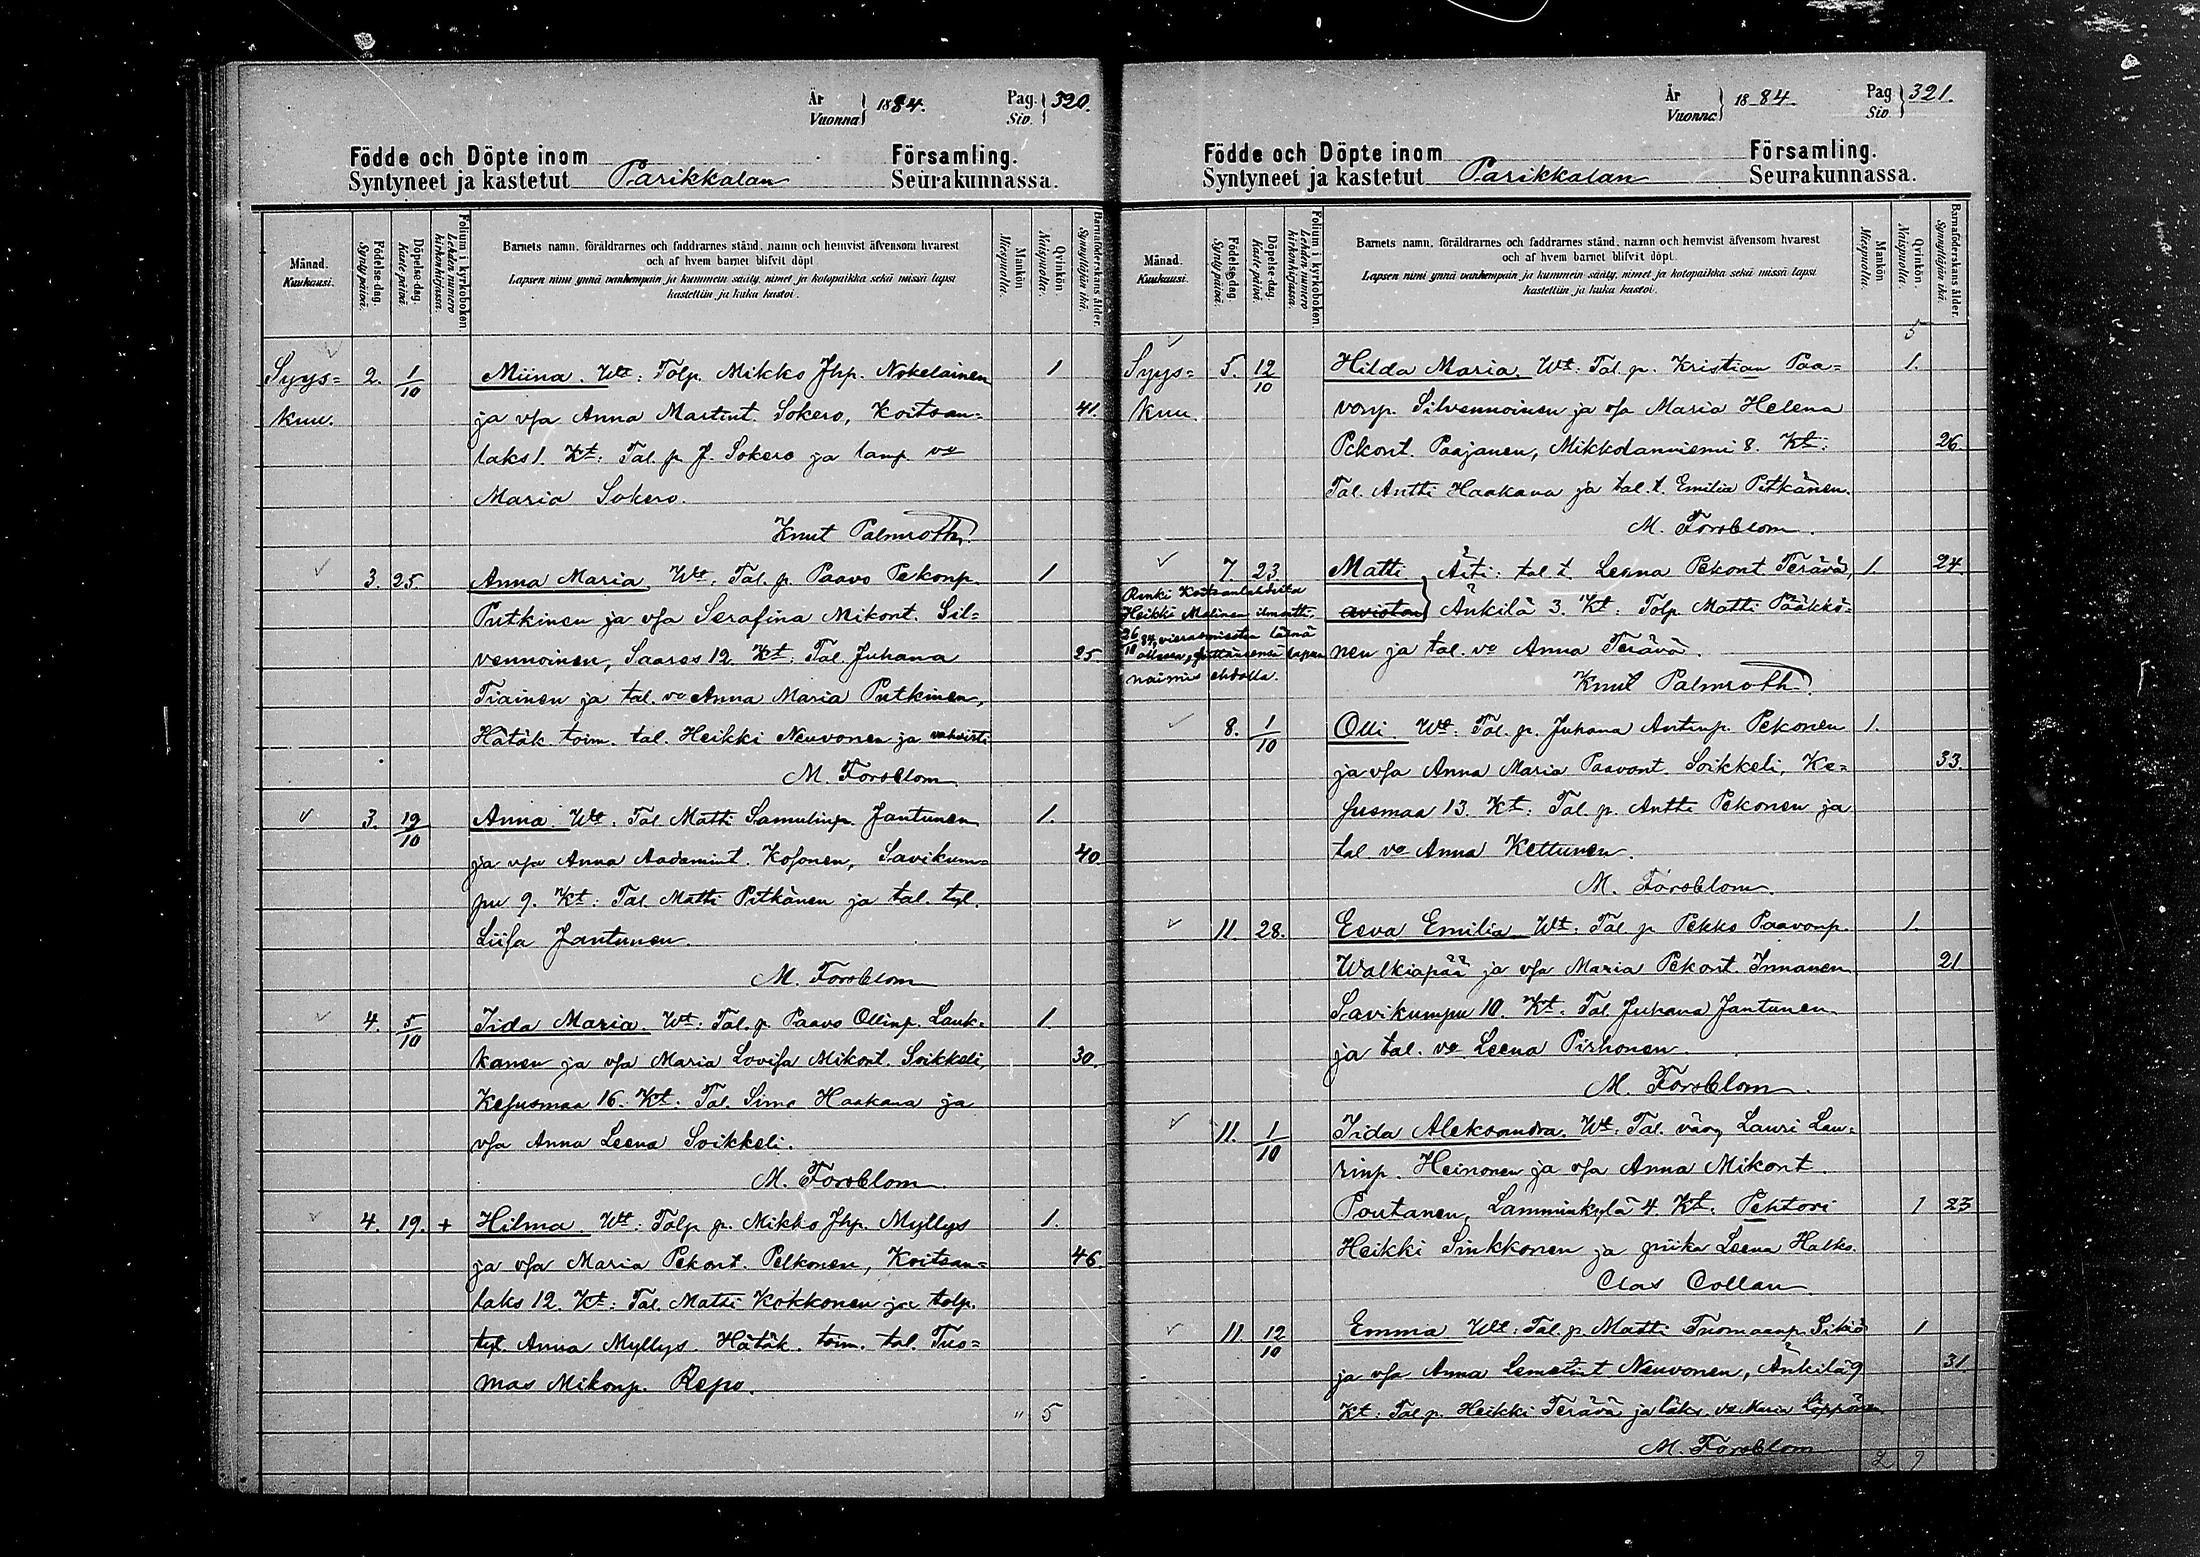 År
Vuonna } 1884.
Pag.
Siv. } 320.
Födde och Döpte inom Församling.
Syntyneet ja kastetut Parikkalan Seurakunnassa.
Månad.
Kuukausi.
Födelse-dag.
Syntypäivä.
Döpelse-dag.
Kaste päivä.
Folium i kyrkoboken.
Lehden numero
kirkonkirjassa.
Barnets namn, föräldrarnes och faddrarnes stånd, namn och hemvist äfvensom hvarest
och af hvem barnet blifvit döpt.
Lapsen nimi ynnä vanhempain ja kummein sääty, nimet ja kotopaikka sekä missä lapsi
kastettiin ja kuka kastoi.
Mankön.
Miespuolia.
Qvinkön.
Naispuolia.
Barnaföderskans ålder.
Synnyttäjän ikä.
Syys= 2. 1/10 Miina. Wt: Tolp. Mikko Jhp. Nokelainen 1
kuu. ja vfa Anna Martint. Sokero, Koitsan= 41.
laks 1. Kt: Tal. p J. Sokero ja lamp vo
Maria Sokero.
Knut Palmroth.
3. 25 Anna Maria Wt. Tal. p Paavo Pekonp. 1
Putkinen ja vfa Serafina Mikont. Sil=
vennoinen, Saares 12 Kt: Tal. Juhana 25
Tiainen ja tal. vo Anna Maria Putkinen,
Hätäk. toim. tal. Heikki Neuvonen ja vahvisti
M. Forsblom
3. 19/10 Anna Wt. Tal Matti Samulinp. Jantunen 1.
ja vfa Anna Aadamint. Kosonen, Savikum= 40.
pu 9. Kt: Tal Matti Pitkänen ja tal. tyt.
Liisa Jantunen.
M. Forsblom
4. 5/10 Iida Maria. Wt: Tal. p. Paavo Ollinp. Lauk= 1
kanen ja vfa Maria Lovisa Mikont. Soikkeli, 30.
Kesusmaa 16. Kt: Tal. Simo Haakana ja
vfa Anna Leena Soikkeli.
M. Forsblom
4. 19. + Hilma Wt: Tolp p. Mikko Jhp. Myllys 1.
ja vfa Maria Pekont. Pelkonen, Koitsan= 46.
laks 12. Kt: Tal. Matti Kokkonen ja tolp.
tyt. Anna Myllys. Hätäk. toim. tal. Tuo=
mas Mikonp. Repo.
" 5
År
Vuonna } 1884.
Pag
Siv. } 321.
Födde och Döpte inom Församling.
Syntyneet ja kastetut Parikkalan Seurakunnassa.
Månad.
Kuukausi.
Födelse-dag.
Syntypäivä.
Döpelse-dag.
Kaste päivä.
Folium i kyrkoboken.
Lehden numero
kirkonkirjassa.
Barnets namn, föräldrarnes och faddrarnes stånd, namn och hemvist äfvensom hvarest
och af hvem barnet blifvit döpt.
Lapsen nimi ynnä vanhempain ja kummein sääty, nimet ja kotopaikka sekä missä lapsi
kastettiin ja kuka kastoi.
Mankön.
Miespuolia.
Qvinkön.
Naispuolia.
Barnaföderskans ålder.
Synnyttäjän ikä.
5
Syys= 5. 12/10 Hilda Maria. Wt: Tal. p. Kristian Paa= 1.
kuu. vonp. Silvennoinen ja vfa Maria Helena
Pekont. Paajanen, Mikkolanniemi 8. Kt: 26.
Tal. Antti Haakana ja tal. t. Emilia Pitkänen.
M. Forsblom.
7. 23 Matti Äiti: tal. t. Leena Pekont Terävä, 1. 24
avioton Änkilä 3. Kt: Tolp. Matti Pääkkö=
nen ja tal. vo Anna Terävä.
Renki
Heikki Malinen ilmoitti
26/10 84, vierasmiesten läsnä
ollessa, lapsen
naimis ehdolla.
Knut Palmroth.
8. 1/10 Olli Wt. Tal. p. Juhana Antinp. Pekonen 1.
ja vfa Anna Maria Paavont. Soikkeli, Ke= 33.
susmaa 13. Kt: Tal. p. Antti Pekonen ja
tal. vo Anna Kettunen.
M. Forsblom.
11. 28. Eeva Emilia Wt: Tal. p Pekko Paavonp. 1.
Walkiapää ja vfa Maria Pekont Innanen 21
Savikumpu 10. Kt: Tal. Juhana Jantunen
ja tal. vo Leena Pirhonen.
M. Forsblom.
11. 1/10 Iida Aleksandra. Wt: Tal. väv. Lauri Lau=
rinp. Heinonen ja vfa Anna Mikont.
Poutanen, Lamminkylä 4. Kt: Pehtori 1 23
Heikki Sinkkonen ja piika Leena Halko.
Clas Collan
11. 12/10 Emma Wt: Tal. p. Matti Tuomaanp. Sikiö 1
ja vfa Anna Lemetint Neuvonen, Änkilä 9 31.
Kt: Tal p. Heikki Terävä ja läks. vo Maria Löppönen
M. Forsblom
2 9